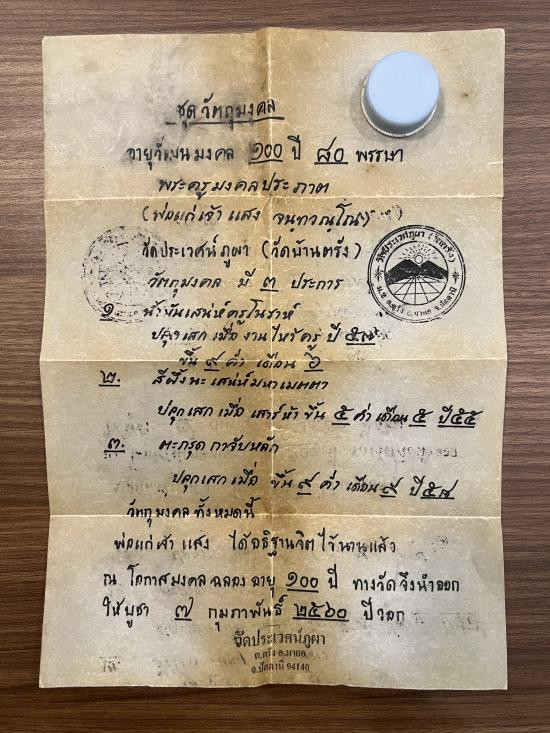 ชุดวัตถุมงคล
อายุวัฒนมงคล ๑๐๐ ปี ๘๐ พรรษา
พระครูมงคลประภาต
(พ่อแก่เจ้าแสง จนฺทวณฺโณ)
วัดประเวศน์ภูผา (วัดบ้านตรัง)
วัตถุมงคล มี ๓ ประการ
๑ น้ำมันเสน่ห์ครูโนราห์
ปลุกเสก เมื่องานไหว้ครู ปี ๕๗
ขึ้น ๙ ค่ำ เดือน ๖
๒. สีผึ้งนะเสน่ห์มหาเมตตา
ปลุกเสก เมื่อ เสาร์ห้า ขึ้น ๕ ค่ำ เดือน ๕ ปี ๕๕
๓. ตะกรุด กาจับหลัก
ปลุกเสก เมื่อ ขึ้น ๙ ค่ำ เดือน ๙ ปี ๕๘
วัตถุมงคล ทั้งหมดนี้
พ่อแก่เจ้าแสง ได้อธิฐานจิตไว้นานแล้ว
ณ โอกาสมงคล ฉลอง อายุ ๑๐๐ ปี ทางวัด จึงนำออก
ให้บูชา ๗ กุมภาพันธ์ ๒๕๖๐ ปีวอก
วัดประเวศน์ภูผา
ต.ตรัง อ.มายอ
จ.ปัตตานี 94140
วัดประเวศน์ภูผา (วัดตรัง)
ม.๕ ต.ตรัง อ.มายอ จ.ปัตตานี